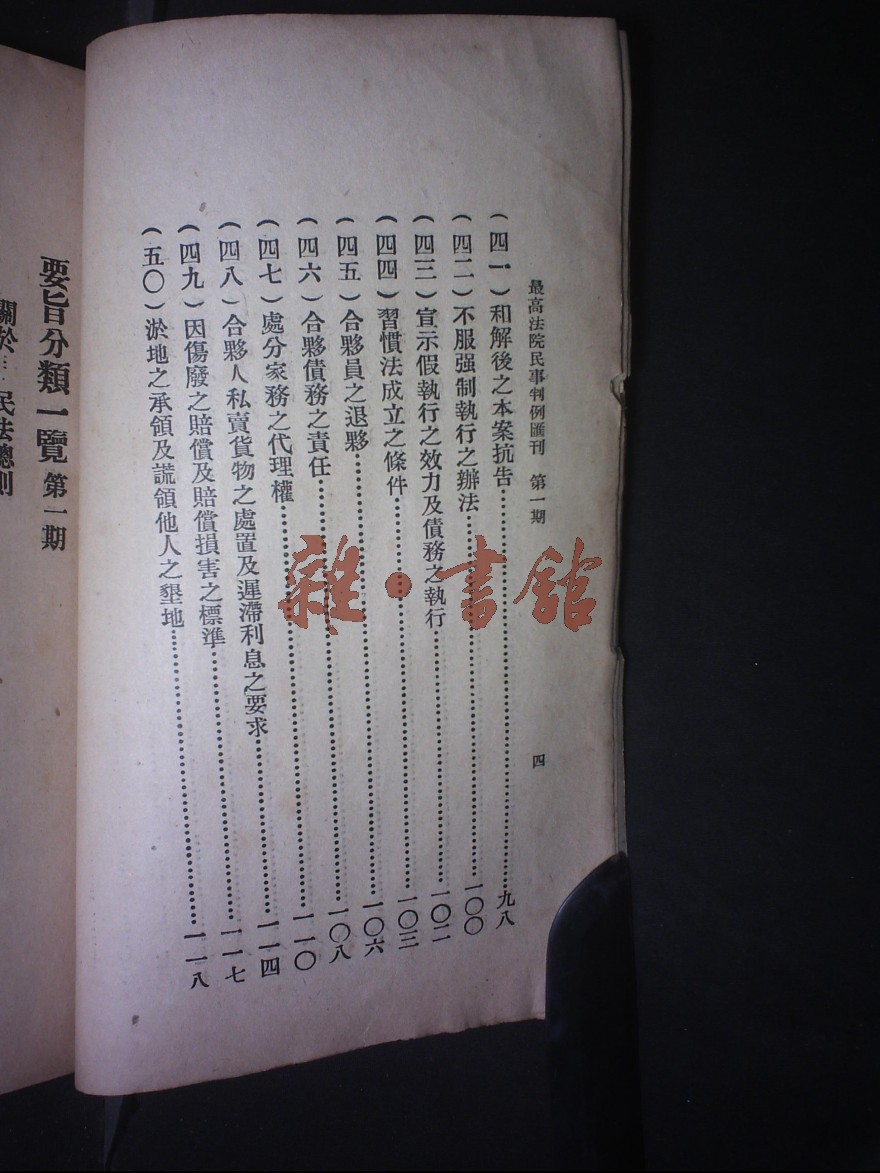 最高法院民事判例匯刊 第一期 四
(四一)和解後之本案抗告……九八
(四二)不服强制執行之辦法……一〇〇
(四三)宣示假執行之效力及債務之執行……一〇二
(四四)習慣法成立之條件……一〇三
(四五)合夥員之退夥……一〇六
(四六)合夥債務之責任……一〇八
(四七)處分家務之代理權……一一〇
(四八)合夥人私賣貨物之處置及遲滯利息之要求……一一四
(四九)因傷廢之賠償及賠償損害之標準……一一七
(五〇)淤地之承領及謊領他人之墾地……一一八
要旨分類一覽 第一期
關於 民法總則
雜·書館